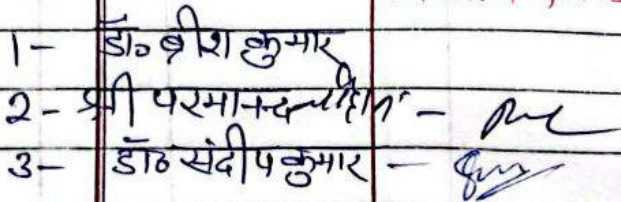 1- डॉ० ब्रीश कुमार
2- श्री परमानन्द -
3- डॉ० संदीप कुमार -